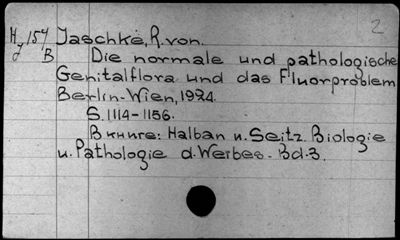 2
Hy 154 Jaschke, R. von.
B Die normale und pathologische
Genitalflora und das Fluorproblem
Berlin-Wien, 1924.
S. 1114-1156.
В книге: Halban u. Seitz Biologie
u. Pathologie d. Weibes. Bd. 3.